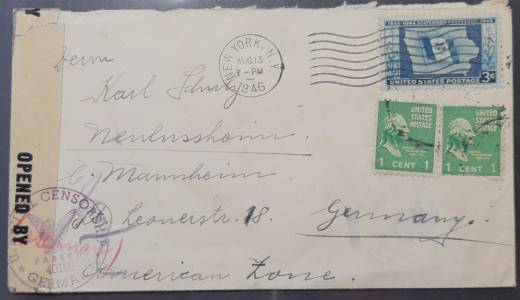 OPENED BY
U.S. CIVIL CENSORSHIP
PASSED
GERMANY
NEW YORK, N.Y.
AUG 13
7-PM
1946
1846 IOWA STATEHOOD CENTENNIAL 1946
UNITED STATES POSTAGE 3¢
UNITED STATES POSTAGE
1 CENT 1
UNITED STATES POSTAGE
1 CENT 1
Herrn
Karl Schutz
Neulussheim
b. Mannheim
Leonerstr. 18.
Germany.
American Zone.